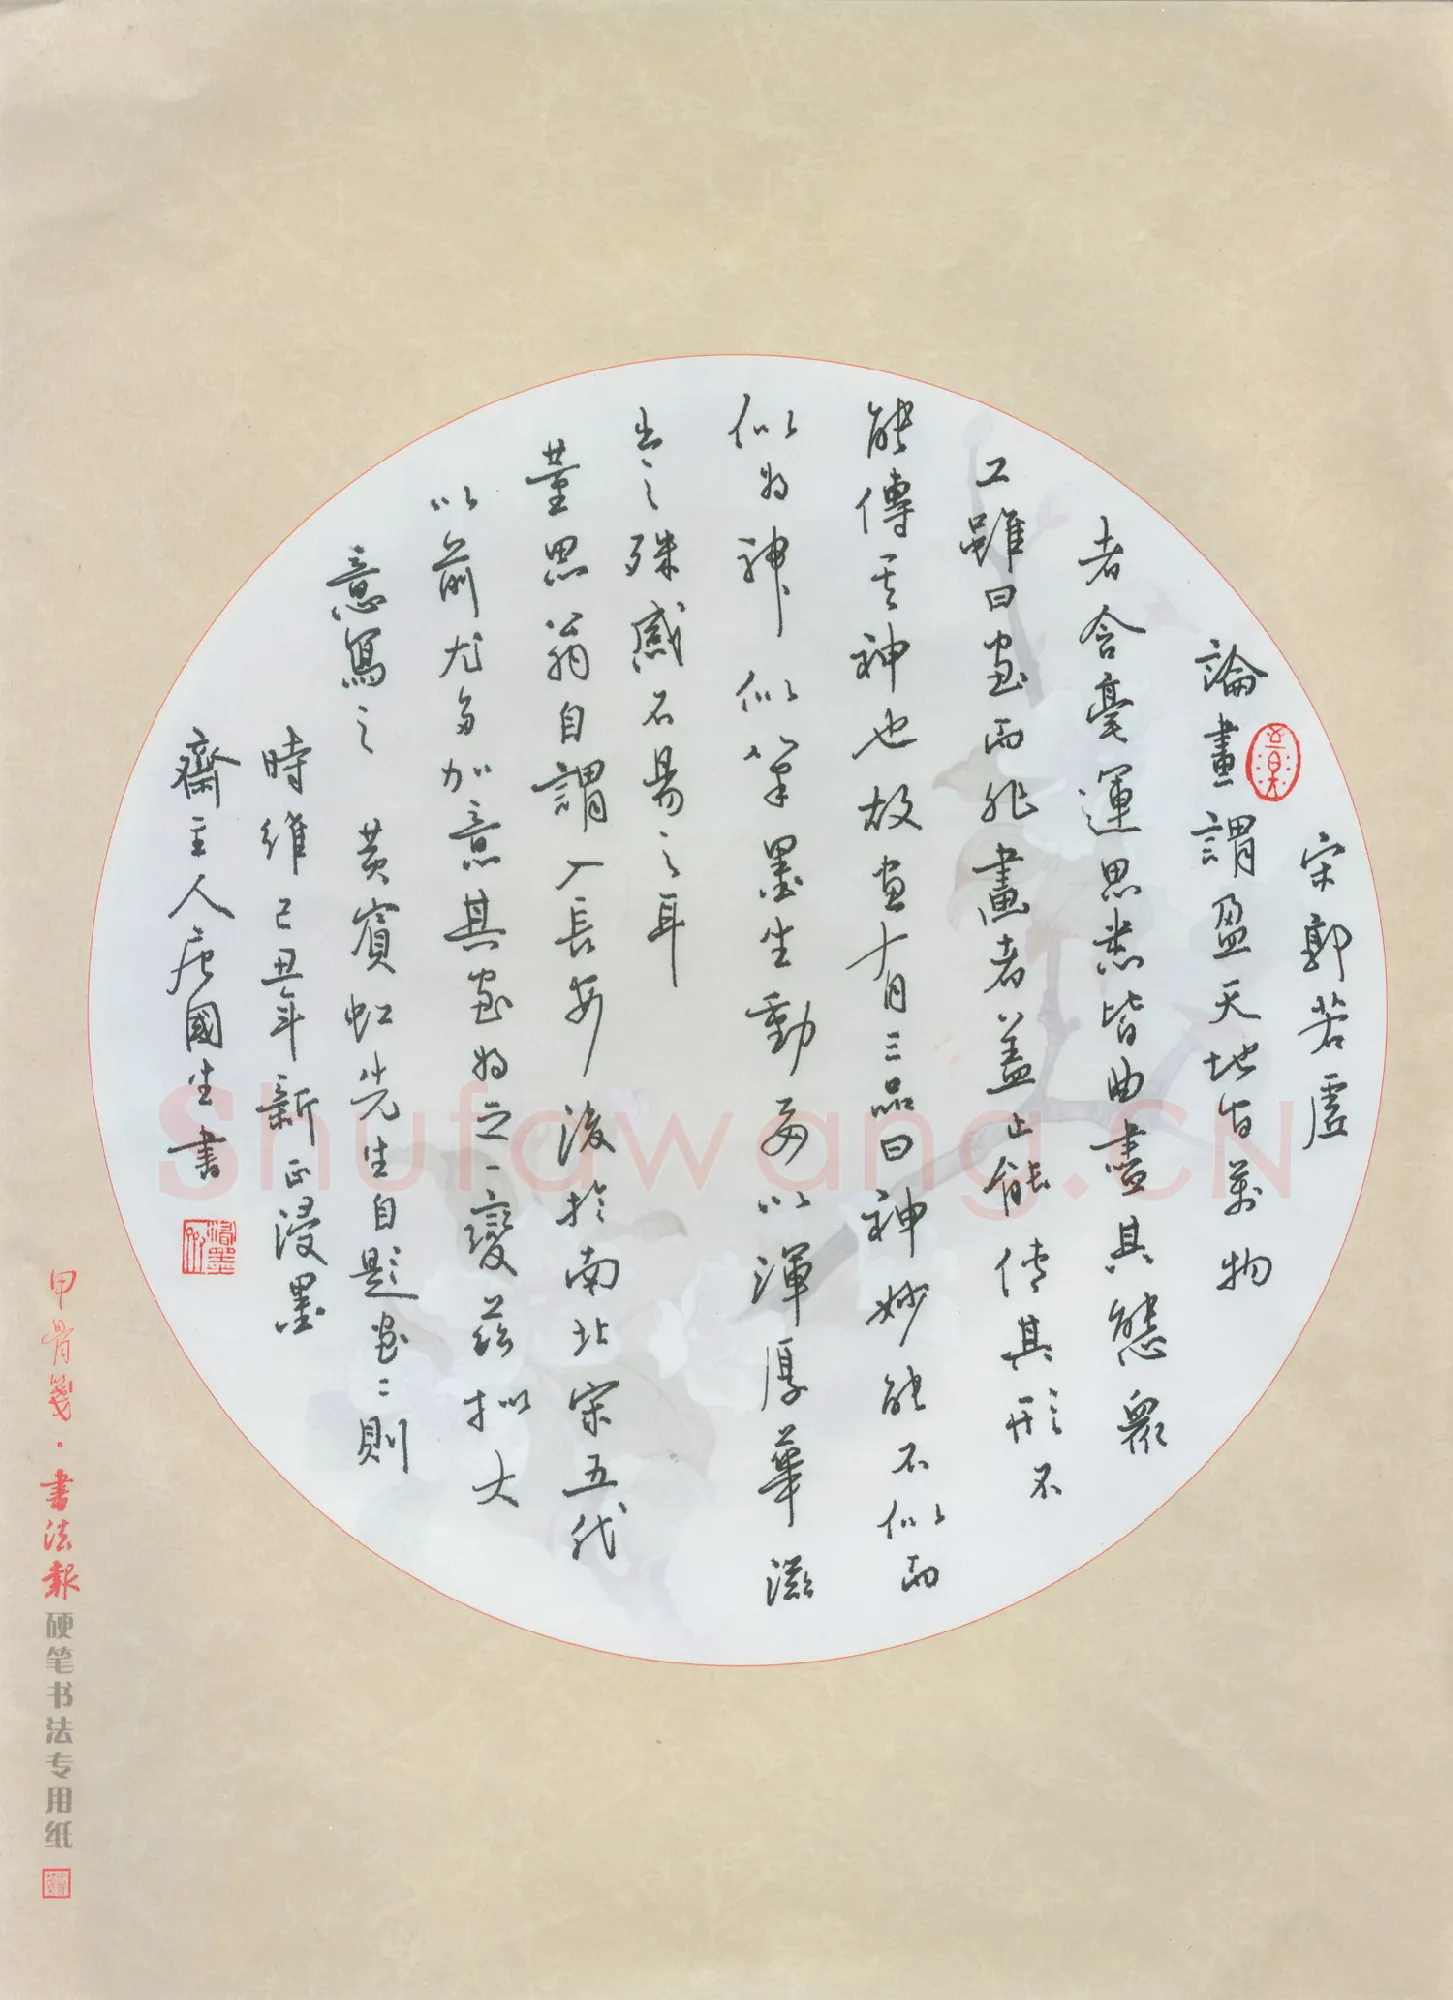 宋郭若虛
論畫謂盈天地皆萬物
者含毫運思悉皆曲盡其態眾
工雖曰畫而非畫者蓋止能傳其形不
能傳其神神也故畫十月三品曰神妙能不似而
似為神似以筆墨生動多以渾厚華滋
出之殊感不易之之耳
董思翁自謂入長安後於南北宋五代
以前尤多加意其畫為之一變茲擬大
意寫之 黃賓虹先生自題畫二則
時維己丑年新正浸墨
齋主人唐國生書
Shufawang.CN
甲骨箋·書法報硬笔书法专用纸